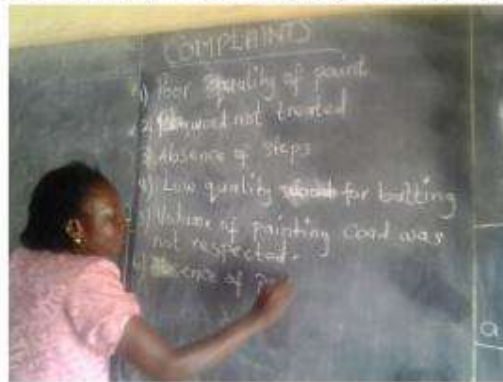 COMPLAINTS
1) Poor quality of paint
2) not treated
3) Absence of steps
4) Low quality for butting
5) Volume of painting coad was
not respected.
6) Absence of
a